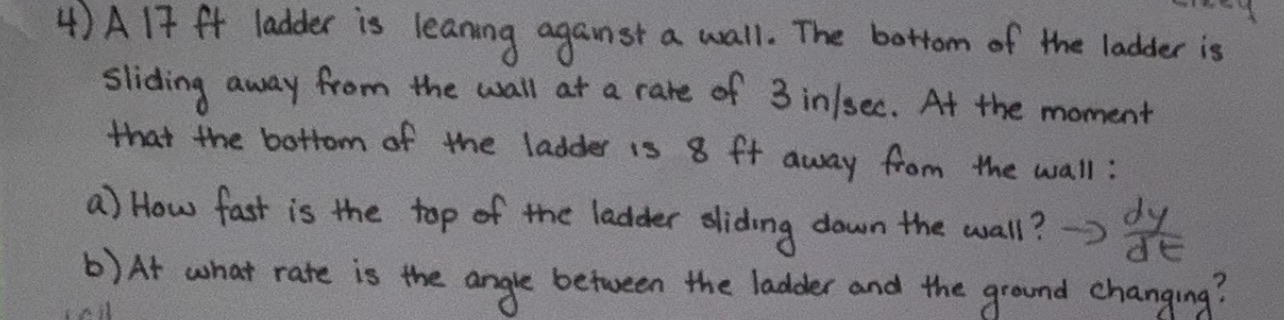 4) A 17 ft ladder is leaning against a wall. The bottom of the ladder is
sliding away from the wall at a rate of 3 in/sec. At the moment
that the bottom of the ladder is 8 ft away from the wall:
a) How fast is the top of the ladder sliding down the wall? → dy/dt
b) At what rate is the angle between the ladder and the ground changing?